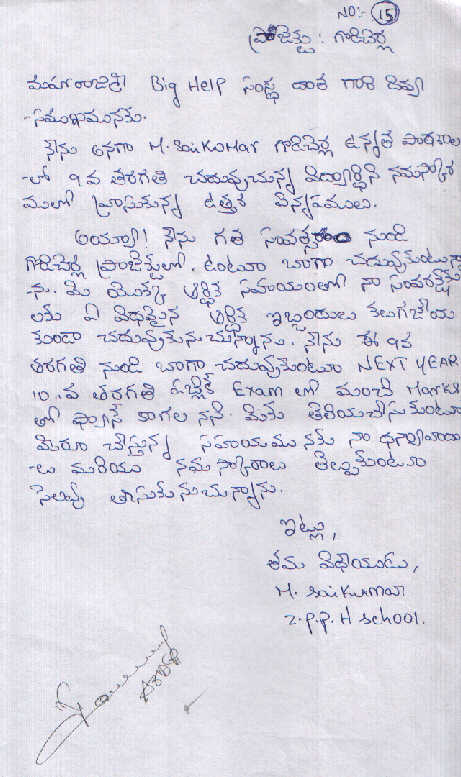 NO:- 15
ప్రాజెక్టు : గొడిచెర్ల
మహారాజశ్రీ Big Help సంస్థ దాత గారి దివ్య
-సముఖమునకు.
నేను అనగా M. Sai Kumar గొడిచెర్ల ఉన్నత పాఠశాల
-లో ౯వ తరగతి చదువుచున్న విద్యార్థిని నమస్కార
ములతో వ్రాసుకున్న ఉత్తర విన్నపములు.
అయ్యా! నేను గత సంవత్సరం నుండి
గొడిచెర్ల ప్రాజెక్టులో ఉంటూ బాగా చదువుకుంటున్నా
ను. మీ యొక్క ఆర్థిక సహాయంతో నా
ఏ విధమైన ఆర్థిక ఇబ్బందులు కలుగజేయ
కుండా చదువుకునుచున్నాను. నేను ఈ 9వ
తరగతి నుండి బాగా చదువుకుంటూ NEXT YEAR
10.వ తరగతి పబ్లిక్ Exam లో మంచి Marks
తో ఫ్యాస్ కాగల నని మీకు తెలియచేసుకుంటూ
మీరు చేస్తున్న సహాయము నకు నా ధన్యవాదా
-లు మరియు నమస్కారాలు తెల్పుకుంటూ
సెలవు తీసుకొనుచున్నాను.
ఇట్లు,
తమ విధేయుడు,
M. Sai Kumar
Z.P.P. H School.